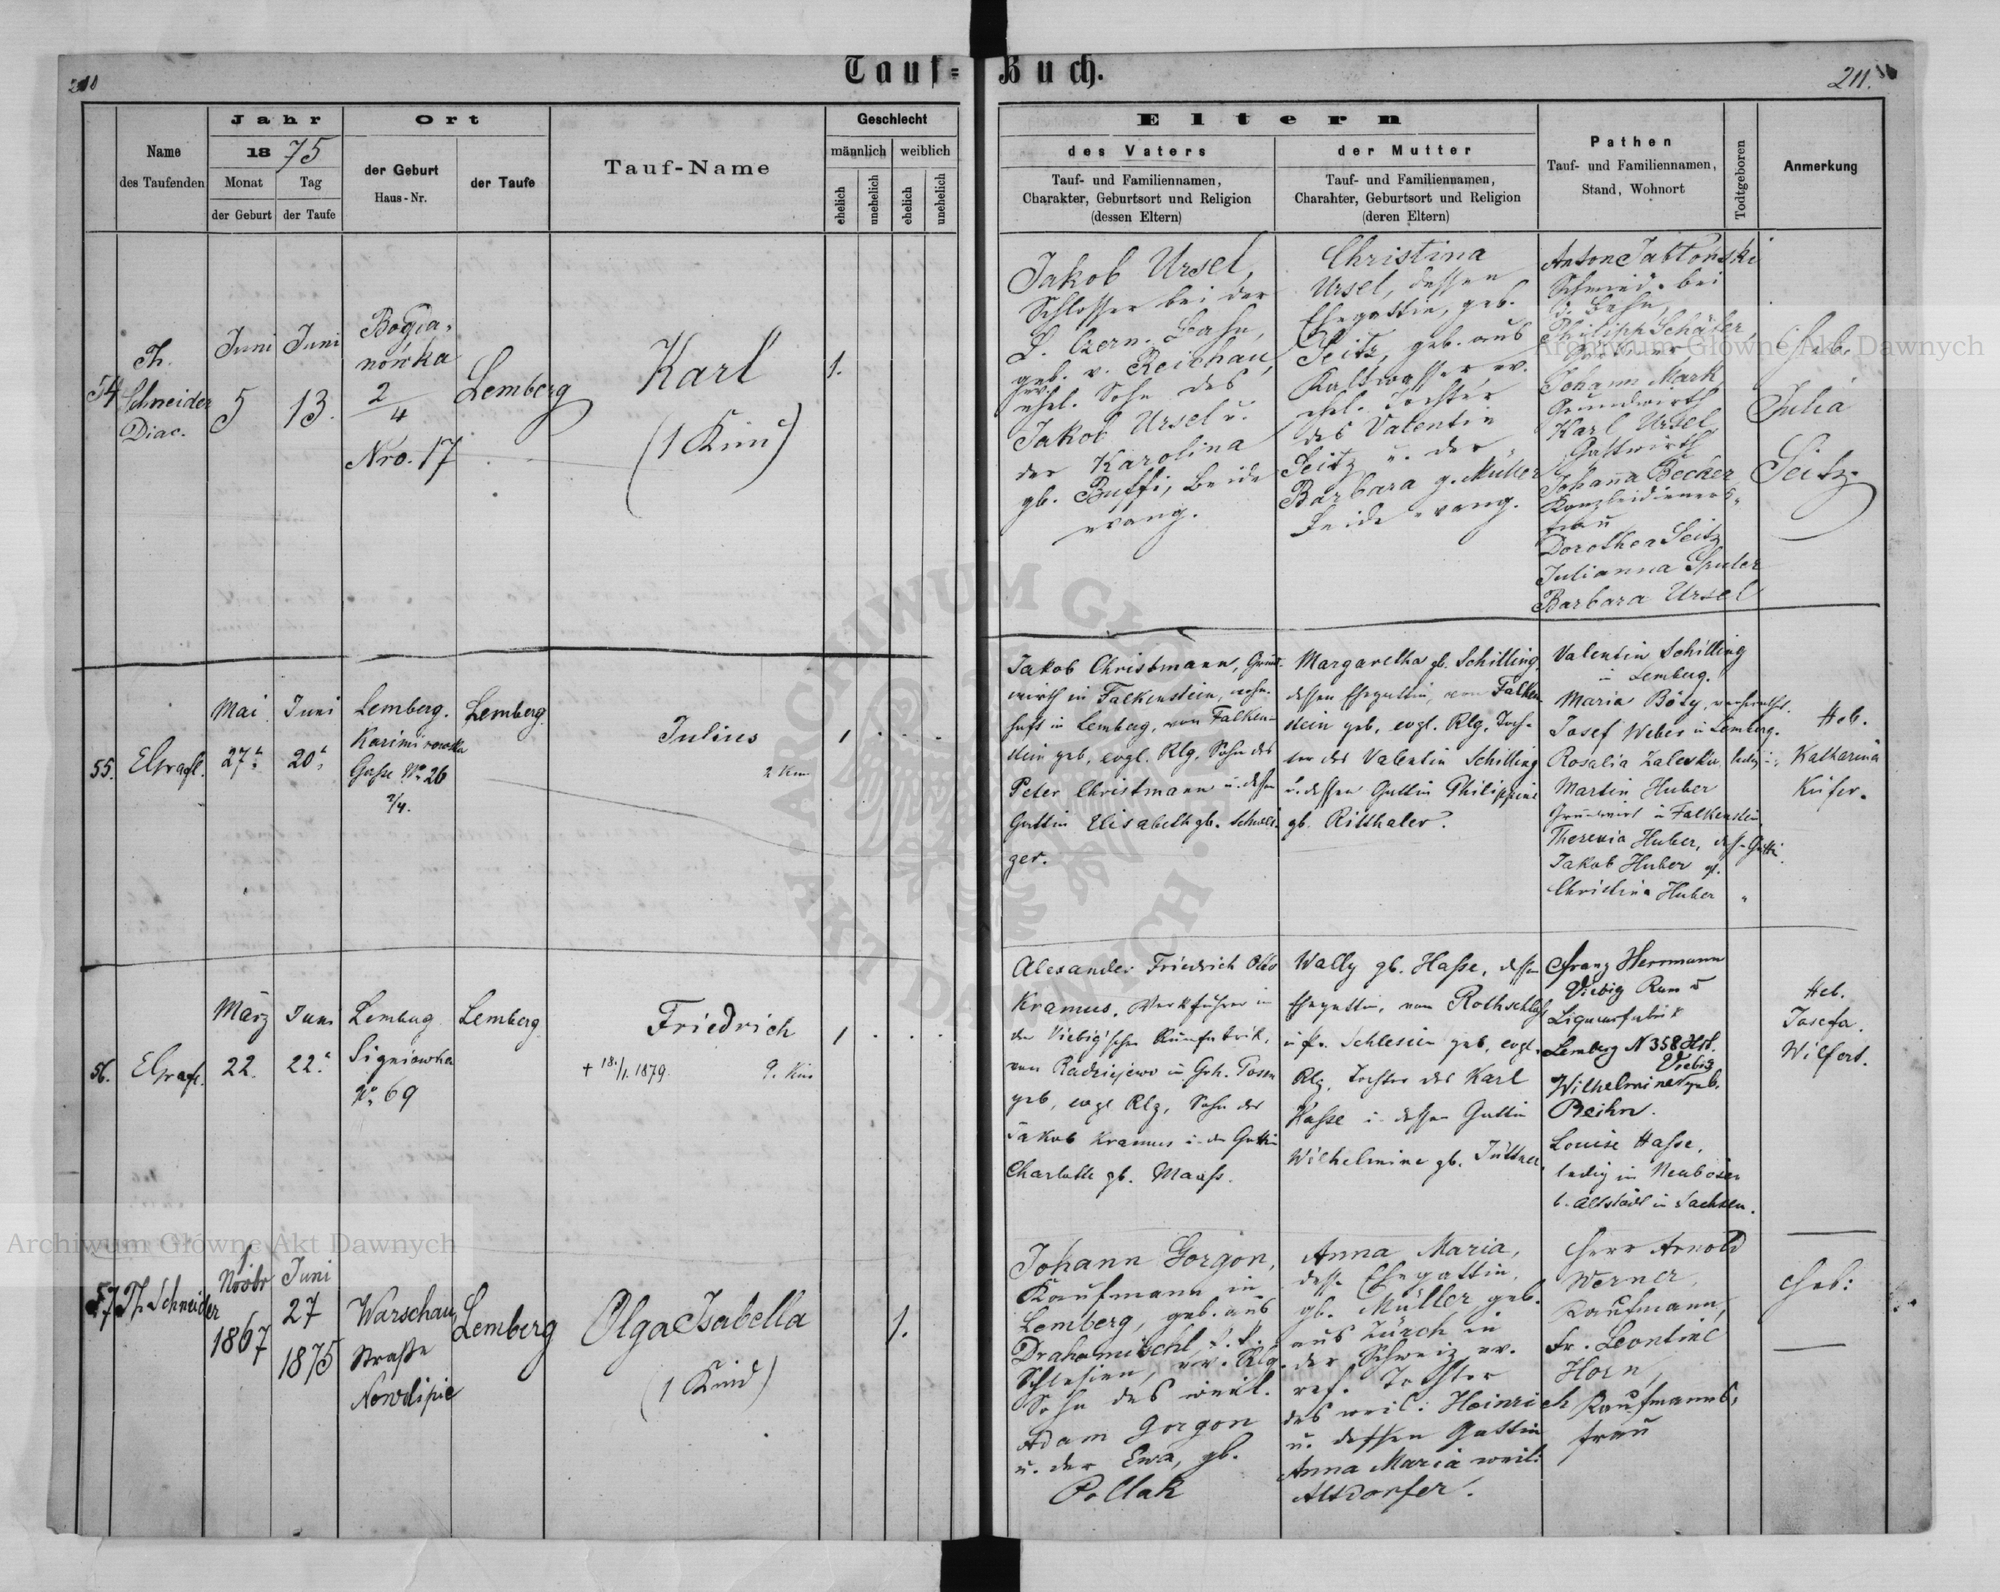 Tauf-Buch.
210
211.
Name
des Taufenden
Jahr
18 75
Monat
der Geburt
Tag
der Taufe
Ort
der Geburt
Haus-Nr.
der Taufe
Tauf-Name
Geschlecht
männlich
weiblich
ehelich
unehelich
ehelich
unehelich
Eltern
des Vaters
Tauf- und Familiennamen,
Charakter, Geburtsort und Religion
(dessen Eltern)
der Mutter
Tauf- und Familiennamen,
Charakter, Geburtsort und Religion
(deren Eltern)
Pathen
Tauf- und Familiennamen,
Stand, Wohnort
Todtgeboren
Anmerkung
54
Th.
Schneider
Diac.
Juni
5
Juni
13.
Bogda-
nówka
2/4
Nro. 17
Lemberg
Karl
(1 Kind)
1.
Jakob Ursel,
Schlosser bei der
L. Czern. Bahn,
geb. v. Reichau,
ev.
ehel. Sohn des
Jakob Ursel u.
der Karolina
gb. Buffi, beide
evang.
Christina
Ursel, dessen
Ehegattin, geb.
Seitz, geb. aus
Kaltwasser, ev.
ehel. Tochter
des Valentin
Seitz u. der
Barbara g. Müller
beide evang.
Anton Jabłonski
Schmied bei
d. Bahn
Philipp Schäfer,
Johann Mark,
Grundwirth
Karl Ursel,
Gastwirth
Johanna Becker
Kanzleidieners-
frau
Dorothea Seitz
Julianna Spuler
Barbara Ursel
Heb.
Julia
Seitz.
55.
EGraefl.
Mai
27.
Juni
20.
Lemberg.
Kazimirowska
Gasse No. 26
2/4.
Lemberg.
Julius
2 Kind
1
Jakob Christmann, Grund-
wirth in Falkenstein, wohn-
haft in Lemberg, von Falken-
stein geb, evgl. Rlg, Sohn des
Peter Christmann u. dessen
Gattin Elisabeth gb. Schwei-
ger.
Margaretha gb. Schilling,
dessen Ehegattin, von Falken-
stein geb, evgl. Rlg, Toch-
ter des Valentin Schilling
u. dessen Gattin Philippine
gb. Ritthaler.
Valentin Schilling
in Lemberg.
Maria Böly, verheirathet.
Josef Weber in Lemberg.
Rosalia Zaleska, ledig
Martin Huber
Grundwirt in Falkenstein
Theresia Huber, dess. Gattin.
Jakob Huber
Christina Huber
Heb.
Katharina
Küfer.
56.
EGraefl.
März
22.
Juni
22.
Lemberg
Signiowka
No. 69
Lemberg
Friedrich
+ 18./1. 1879.
9. Kind
1
Alexander Friedrich Otto
Kramus, Werkführer in
der Viebig'schen Rumfabrik,
von Radziejewo in Grh. Posen
geb, evgl Rlg, Sohn des
Jakob Kramus u. der Gattin
Charlotte gb. Maass.
Wally gb. Hasse, dessen
Ehegattin, von Rothschloss
in pr. Schlesien geb, evgl.
Rlg, Tochter des Karl
Hasse u. dessen Gattin
Wilhelmine gb. Jüttner.
Franz Herrmann
Viebig Rum u
Liqueurfabrik
Lemberg N 358
Viebig
Wilhelmine geb.
Beihn.
Louise Hasse,
ledig in
b. Altstadt in Sachsen.
Heb.
Josefa
Wilfert.
57
Th. Schneider
1.
Novbr
1867
Juni
27
1875
Warschau,
Straße
Nowolipie
Lemberg
Olga Isabella
(1 Kind)
1.
Johann Gorgon,
Kaufmann in
Lemberg, geb. aus
Drahomischl, k.k.
Schlesien, ev. Rlg.
Sohn des weil.
Adam Gorgon
u. der Ewa, gb.
Pollak
Anna Maria,
dess. Ehegattin,
gb. Müller geb.
aus Zürch in
der Schweiz ev.
ref. Tochter
des weil: Heinrich
u. dessen Gattin
Anna Maria weil:
Altdorfer.
Herr Arnold
Werner,
Kaufmann,
Fr. Leontine
Horn,
Kaufmanns-
frau
Heb:
Archiwum Główne Akt Dawnych
Archiwum Główne Akt Dawnych
ARCHIWUM GŁÓWNE AKT DAWNYCH